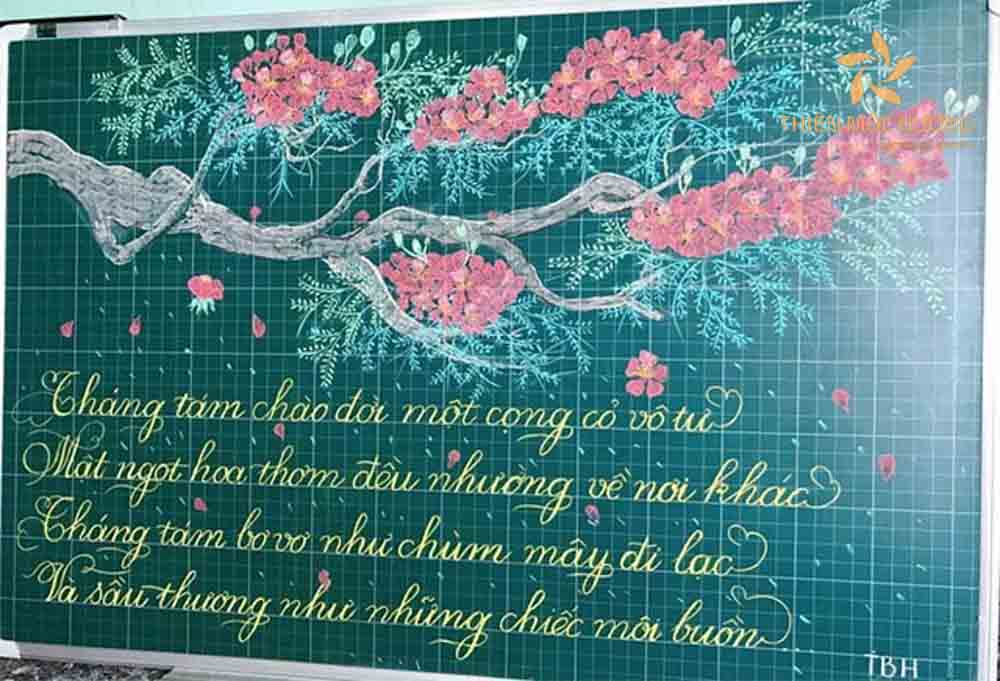 Tháng tám chào đời một cọng cỏ vô tư
Mật ngọt hoa thơm đều nhường về nơi khác
Tháng tám bơ vơ như chùm mây đi lạc
Và sầu thương như những chiếc môi buồn
TBH